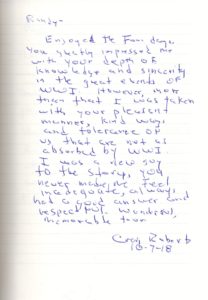 Randy-
Enjoyed the Four days
You greatly impressed me
with your depth of
knowledge and sincerity
in the great events of
WWI. However, more
than that I was taken
with your pleasant
manner, kind ways
and tolerance of
us that are not as
absorbed by WWI
I was a new guy
to the story, you
never made me feel
inadequate, always
had a good answer and
respectful. Wondrous,
memorable tour
Craig Roberts
10-7-18